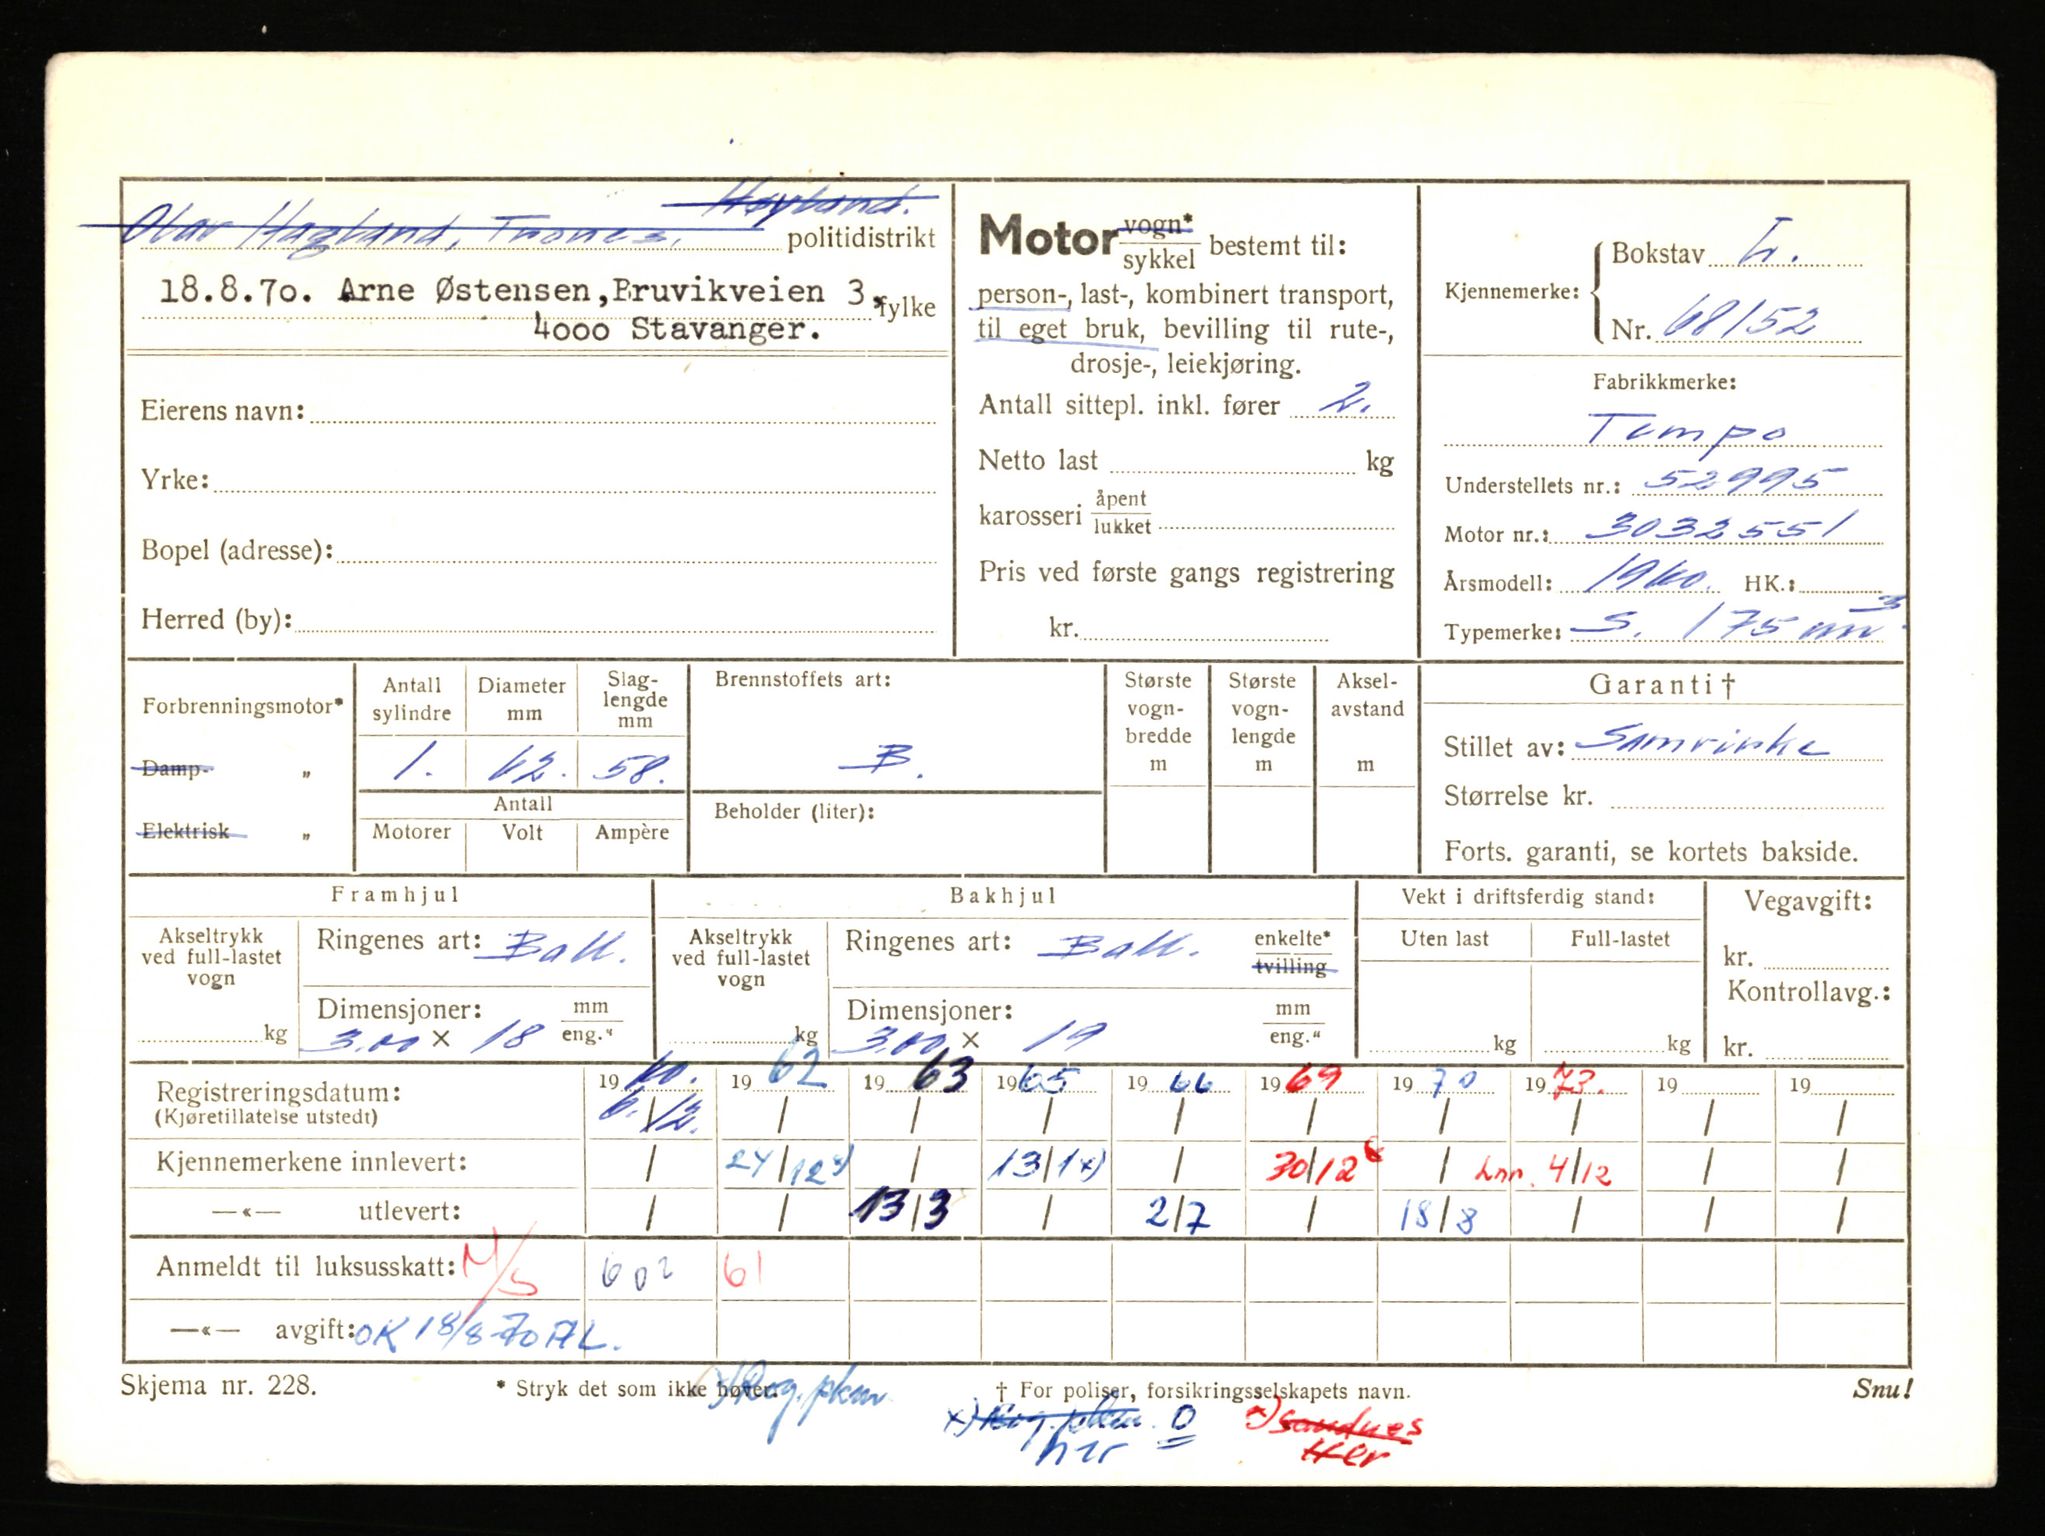 Olav Hagland, Trones, Høyland.
politidistrikt
18.8.7o. Arne Østensen, Bruvikveien 3,
*fylke
4ooo Stavanger.
Eierens navn:
Yrke:
Bopel (adresse):
Herred (by):
Motor vogn* / sykkel bestemt til:
person-, last-, kombinert transport,
til eget bruk, bevilling til rute-,
drosje-, leiekjøring.
Antall sittepl. inkl. fører 2.
Netto last kg
karosseri åpent / lukket
Pris ved første gangs registrering
kr.
Kjennemerke: Bokstav L.
Nr. 68152
Fabrikkmerke:
Tempo
Understellets nr.: 52995
Motor nr.: 3032551
Årsmodell: 1960. HK.:
Typemerke: S. 175 cm³
Forbrenningsmotor*
Damp- „
Elektrisk „
Antall sylindre
Diameter mm
Slag-lengde mm
1. 62. 58.
Antall
Motorer Volt Ampère
Brennstoffets art:
B.
Beholder (liter):
Største vogn-bredde m
Største vogn-lengde m
Aksel-avstand m
Garanti †
Stillet av: Samvirke
Størrelse kr.
Forts. garanti, se kortets bakside.
Framhjul
Akseltrykk ved full-lastet vogn
kg
Ringenes art: Ball.
Dimensjoner: mm / eng."
3.00 × 18
Bakhjul
Akseltrykk ved full-lastet vogn
kg
Ringenes art: Ball. enkelte* / tvilling
Dimensjoner: mm / eng."
3.00 × 19
Vekt i driftsferdig stand:
Uten last Full-lastet
kg kg
Vegavgift:
kr.
Kontrollavg.:
kr.
Registreringsdatum: 1960. 1962 1963 1965 1966 1969 1970 1973. 19 19
(Kjøretillatelse utstedt) 6./12. / / / / / / / / /
Kjennemerkene innlevert: / 24/12 x) / 13/1 x) / 30/12 x / Inn. 4/12 / /
—«— utlevert: / / 13/3 / 2/7 / 18/8 / / /
Anmeldt til luksusskatt: M/S 602 61
—«— avgift: OK 18/8-70 AL.
Skjema nr. 228.
* Stryk det som ikke høver.
† For poliser, forsikringsselskapets navn.
Snu!
x) Rog. pkm
x) Rog. pkm. O
her
x) Sandnes
Her